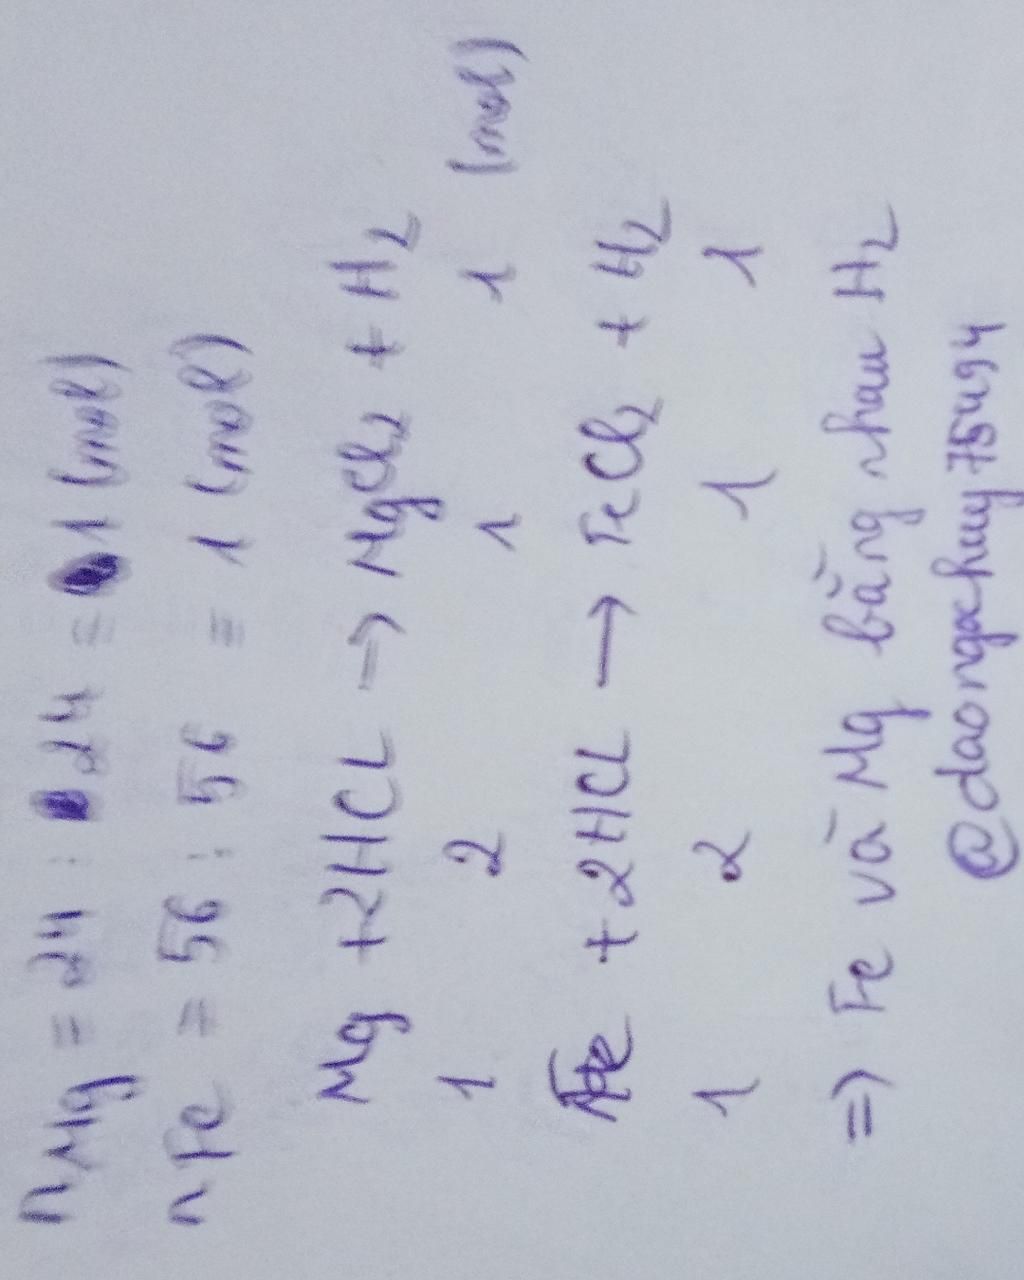 nMg = 24 : 24 = 1 (mol)
nFe = 56 : 56 = 1 (mol)
Mg + 2HCL → MgCl2 + H2
1 2 1 1 (mol)
Fe + 2HCL → FeCl2 + H2
1 2 1 1
=) Fe và Mg bằng nhau H2
@daongochuy75u94